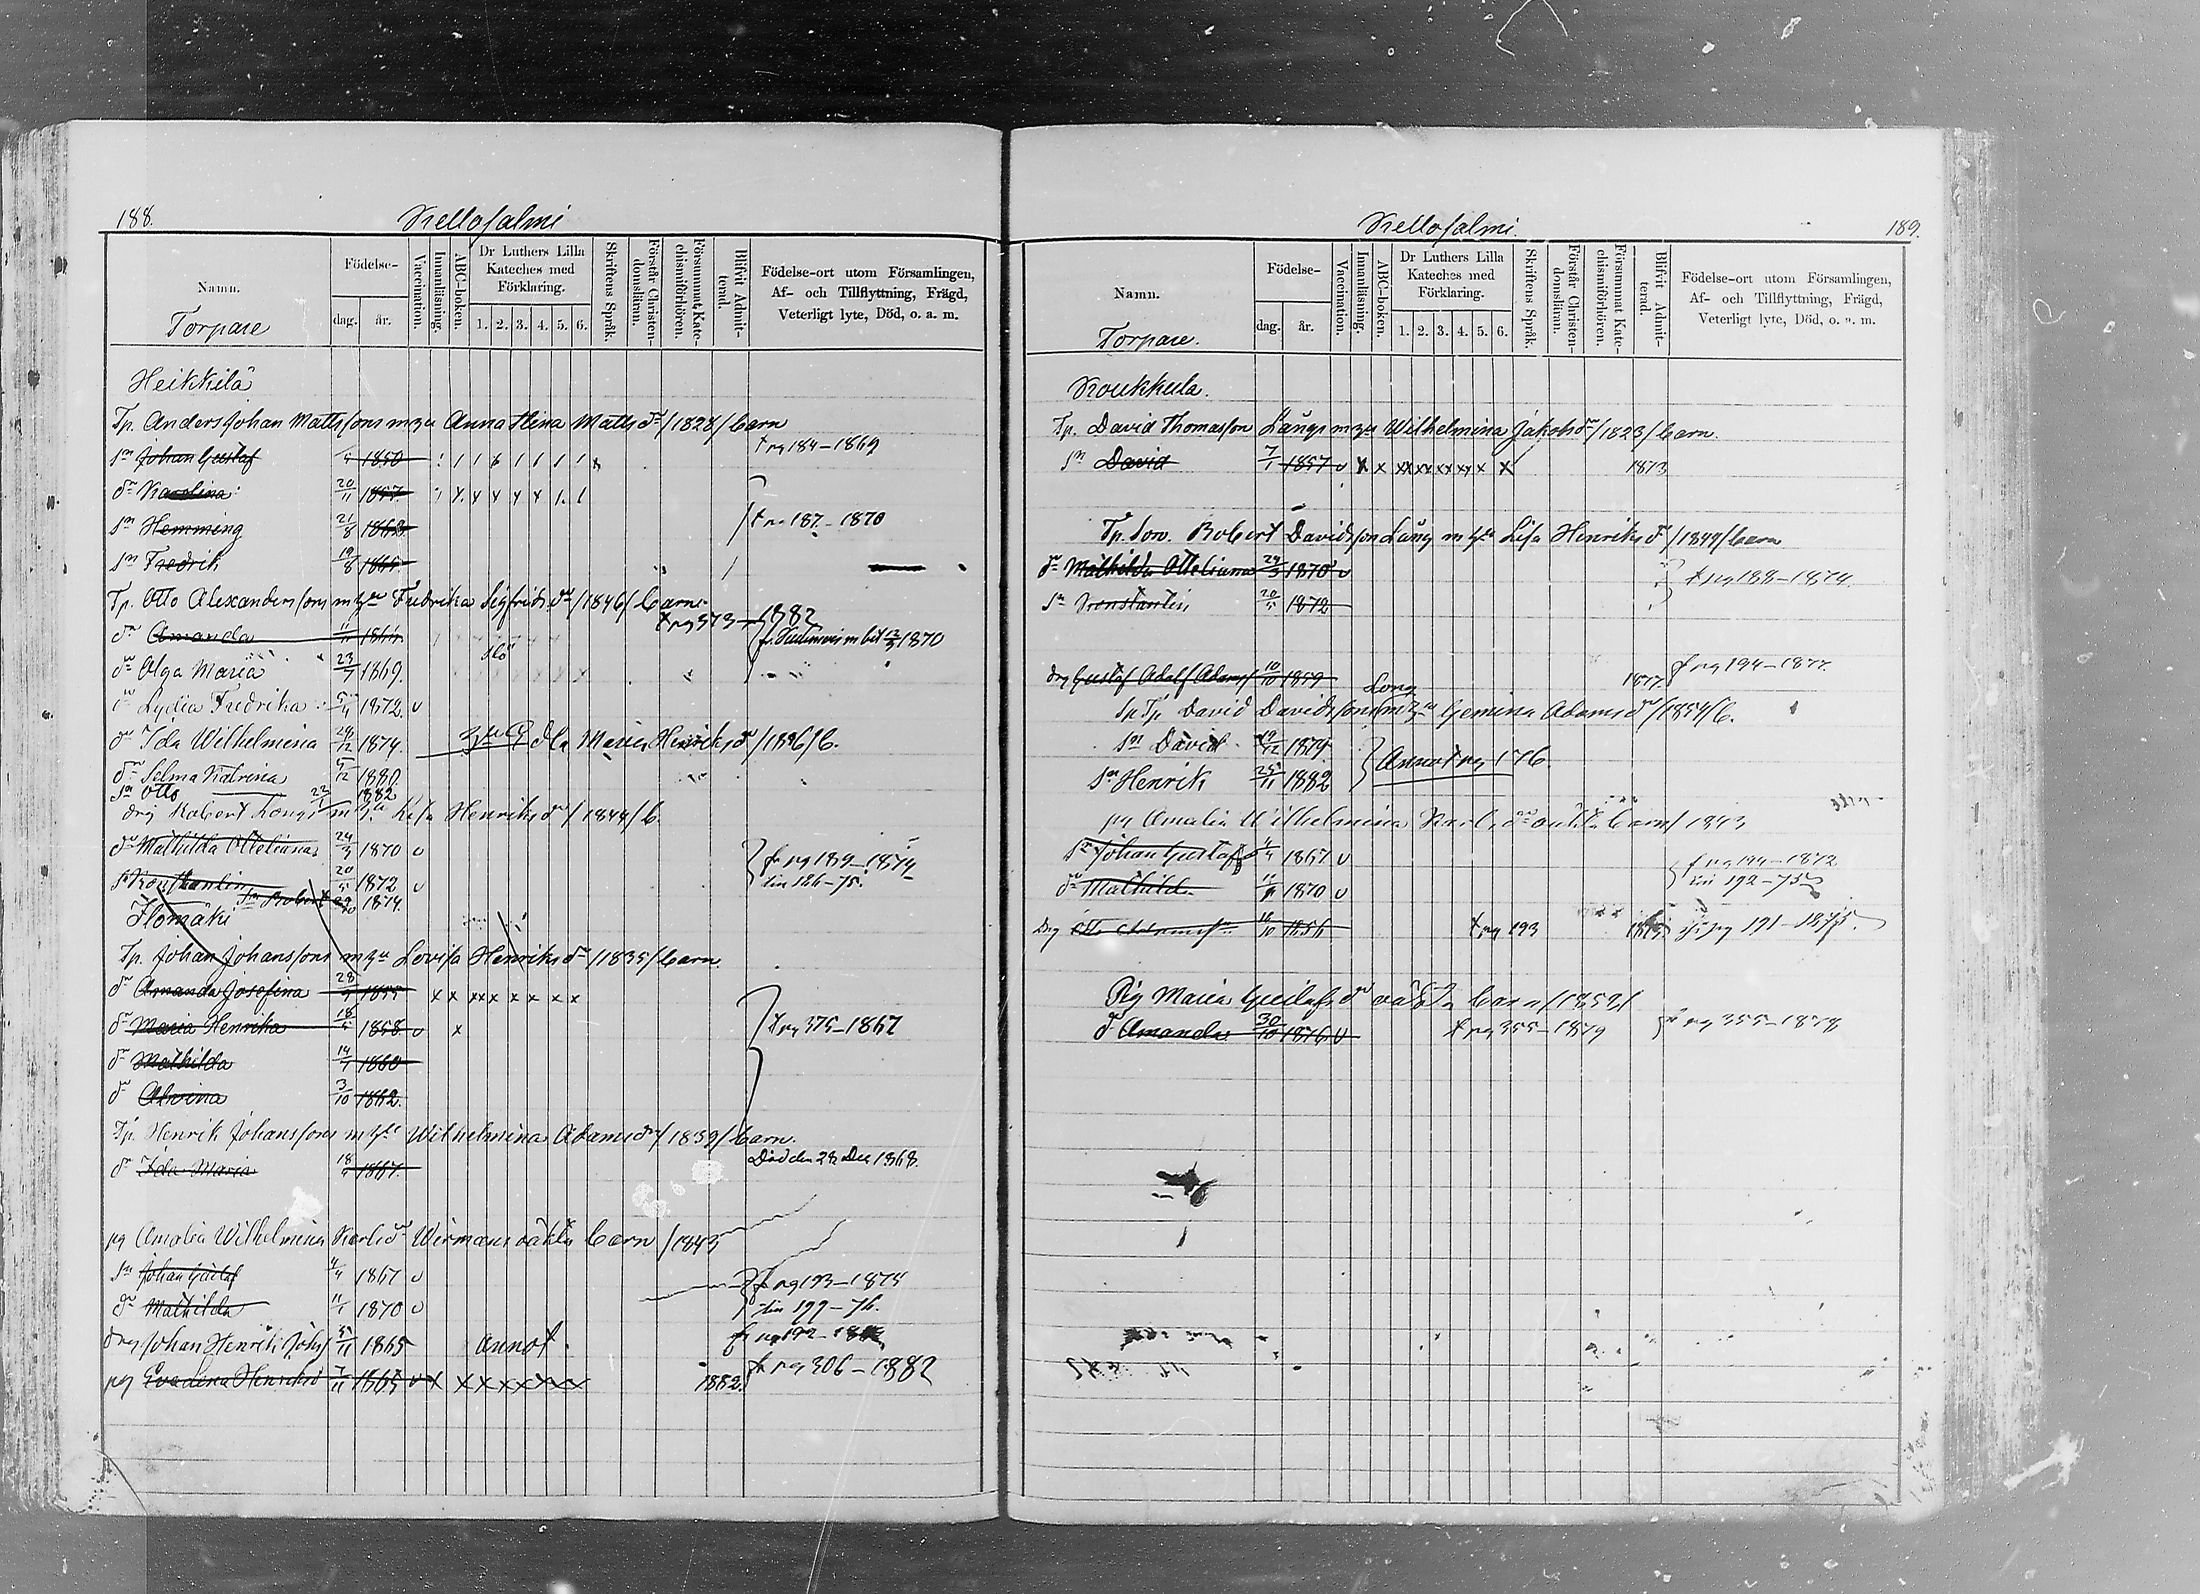 188.
Kellosalmi
Namn.
Torpare
Födelse-
dag.
år.
Vaccination.
Innanläsning.
ABC-boken.
Dr Luthers Lilla Kateches med Förklaring.
1. 2. 3. 4. 5. 6.
Skriftens Språk.
Förstår Christen-domsläran.
Försummat Kate-chismiförhören.
Blifvit Admit-terad.
Födelse-ort utom Församlingen, Af- och Tillflyttning, Frägd, Veterligt lyte, Död, o. a. m.
Heikkilä
Tp. Anders Johan Mattssons m hu Anna Stina Matts dr /1828/ barn
sn Johan Gustaf 1850 t pg 184-1869
dr Karolina 20/11 1857
sn Hemming 21/8 1862 t pg 187-1870
sn Fredrik 19/8 1865
Tp. Otto Alexanderssons m hu Fredrika Sigfrids dr /1846/ barn
t pg 373-1882
dr Amanda 1864 1870
dr Olga Maria 23/7 1869.
dr Lydia Fredrika 1872. v
dr Ida Wilhelmina 24/12 1874. Maria Henriks dr /1836/ b.
dr Selma Katrina 5/12 1880
sn Otto 1882
drg Robert Longs m hu Lisa Henriks dr /1849/ b.
dr Mathilda Otteliana 24/3 1870 v fr pg 189-1874
sn Konstantin 20/5 1872 v till 186-75.
sn Robert 1874.
Ilomäki
Tp. Johan Johanssons m hu Lovisa Henriks dr /1835/ barn
dr Amanda Josefina 28/9 1855 x x xx x x x x x
dr Maria Henrika 18/5 1858 v x t pg 375-1867
dr Mathilda 14/7 1860
dr Alvina 3/10 1862.
Tp. Henrik Johanssons m hu Wilhelmina Adams dr /1839/ barn.
dr Ida Maria 1867. Död den 28 Dec 1868.
pg Amalia Wilhelmina Karls dr Wirmans oäkta barn /1843
sn Johan Gustaf 4/4 1867 v fr pg 193-1875
dr Mathilda 11/1 1870 v till 199-76.
drg Johan Henrik Johs 1865 annot. fr pg 192
pg Eva Lena Henriksd 7/11 1865 v x x x x x x x x 1882. fr pg 306-1882
189.
Kellosalmi.
Namn.
Torpare.
Födelse-
dag.
år.
Vaccination.
Innanläsning.
ABC-boken.
Dr Luthers Lilla Kateches med Förklaring.
1. 2. 3. 4. 5. 6.
Skriftens Språk.
Förstår Christen-domsläran.
Försummat Kate-chismiförhören.
Blifvit Admit-terad.
Födelse-ort utom Församlingen, Af- och Tillflyttning, Frägd, Veterligt lyte, Död, o. a. m.
Koukkula.
Tp. David Thomasson Långs m hu Wilhelmina Jakobs dr /1823/ barn.
sn David 7/1 1857 v x x xx xx xx xx x x 1873
Tp. Son. Robert Davidsson Lång m hu Lisa Henriks dr /1849/ barn
dr Mathilda Otteliana 24/3 1870 v t pg 188-1874
sn Konstantin 20/5 1872
drg Gustaf Adolf Adamss 10/10 1859 1877. fr pg 194-1877
Long
Sp Tp. David Davidssons m hu Gemina Adams dr /1854/ b.
sn David 19/12 1879. Annot pg 176
sn Henrik 25/11 1882
pg Amalia Wilhelmina Karls dr oäkta barn / 1843
sn Johan Gustaf 4/4 1867 v fr pg 194-1872
dr Mathild 11/1 1870 v till 192-75
Drg 10/10 1856 t pg 193 pg 191-1875.
Pig Maria Gustafs dr oäkta barn /1852/
dr Amanda 30/10 1876 v t pg 355-1879 fr pg 355-1878